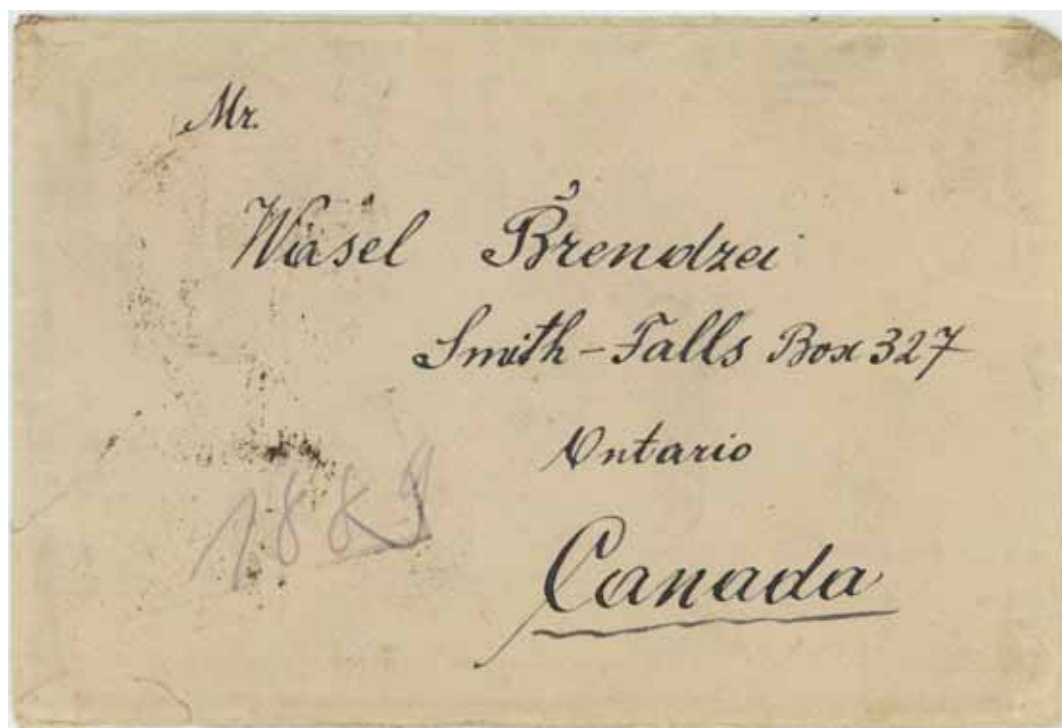 Mr.
Wasel Brendzei
Smith-Falls Box 327
Ontario
Canada